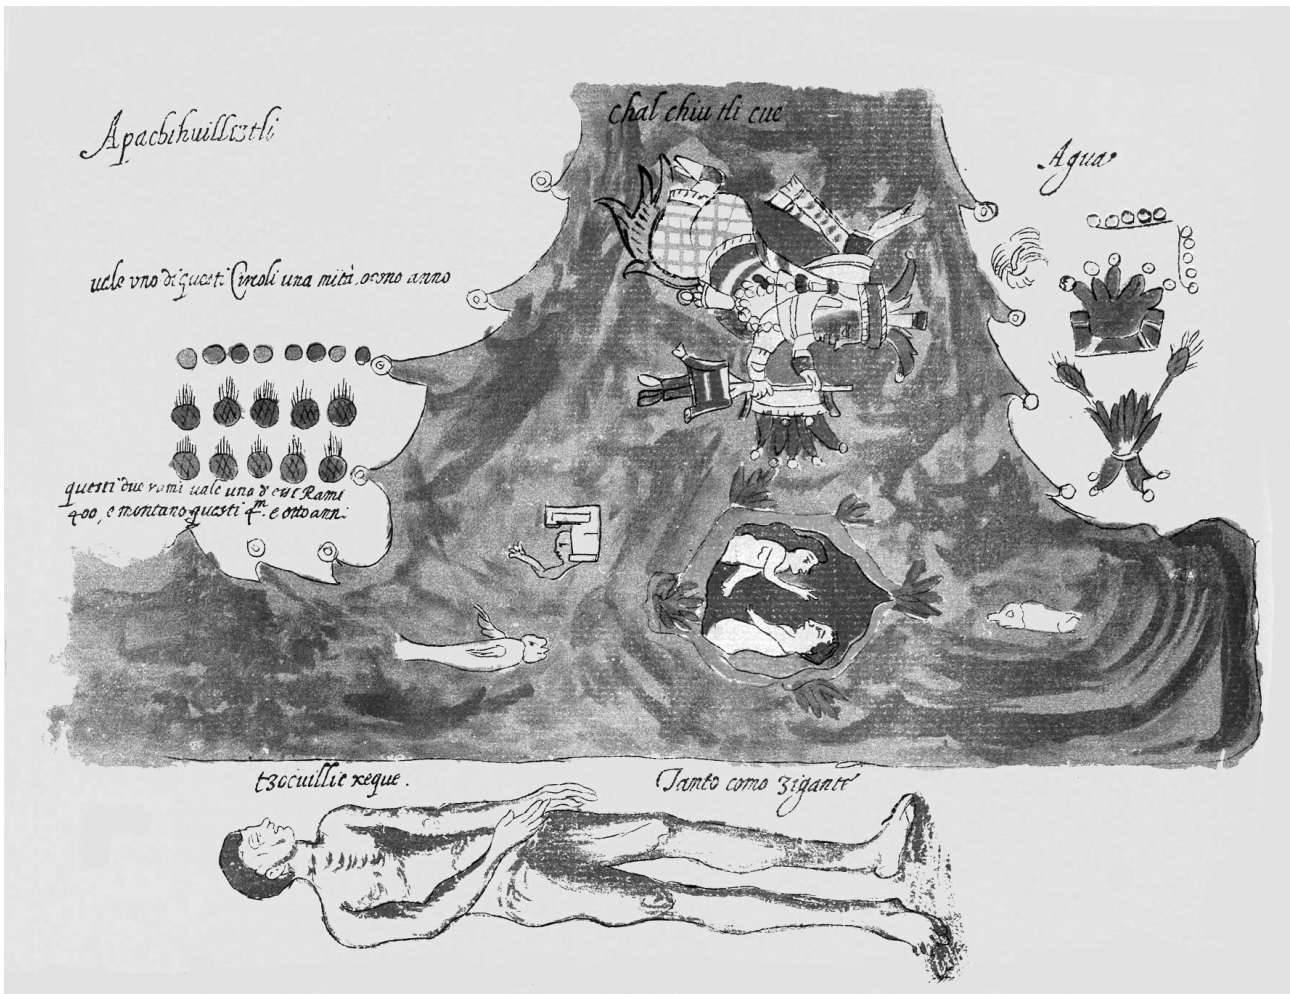 Apachihuiliztli
chal chiutli cue
Agua
uale uno di questi Circoli una mità, o uno anno
questi due rami uale uno d'essi Rami
400, e montano questi 4m. e otto anni.
tzocuillic xeque.
Tanto como zigante